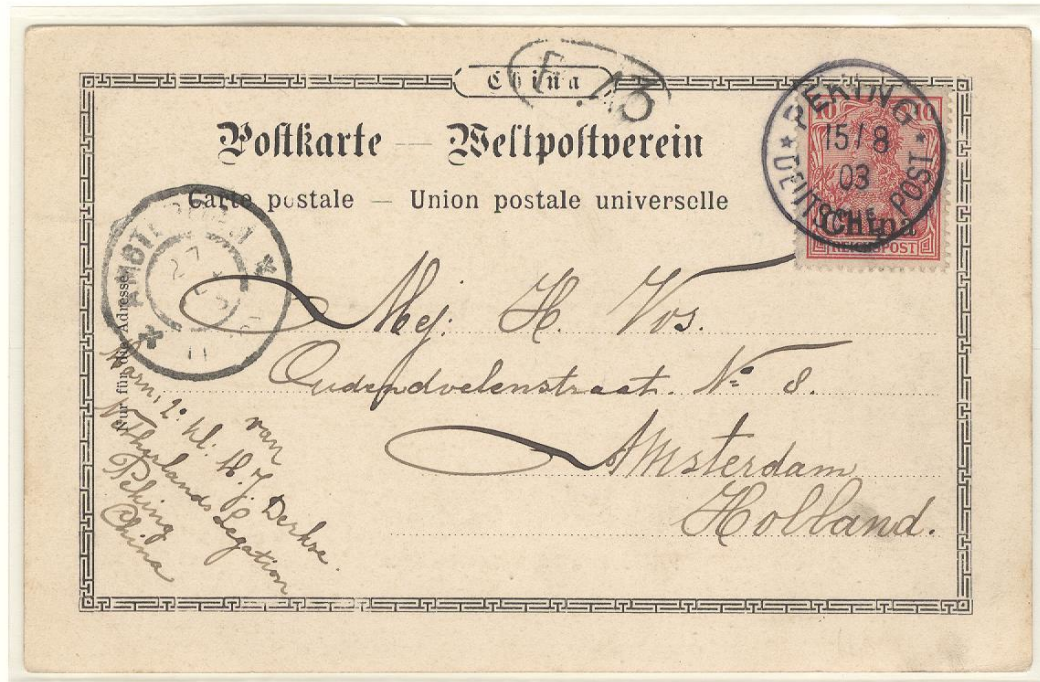 China
Postkarte — Weltpostverein
Carte postale — Union postale universelle
PEKING
15/8
03
DEUTSCHE POST
10 10
China
REICHSPOST
AMSTERDAM
27
Nur für die Adresse
Mej. H. Vos.
Oudendvelenstraat. No 8.
Amsterdam
Holland.
van
Marn, 2e kl. H. J.
Netherlands Legation
Peking
China